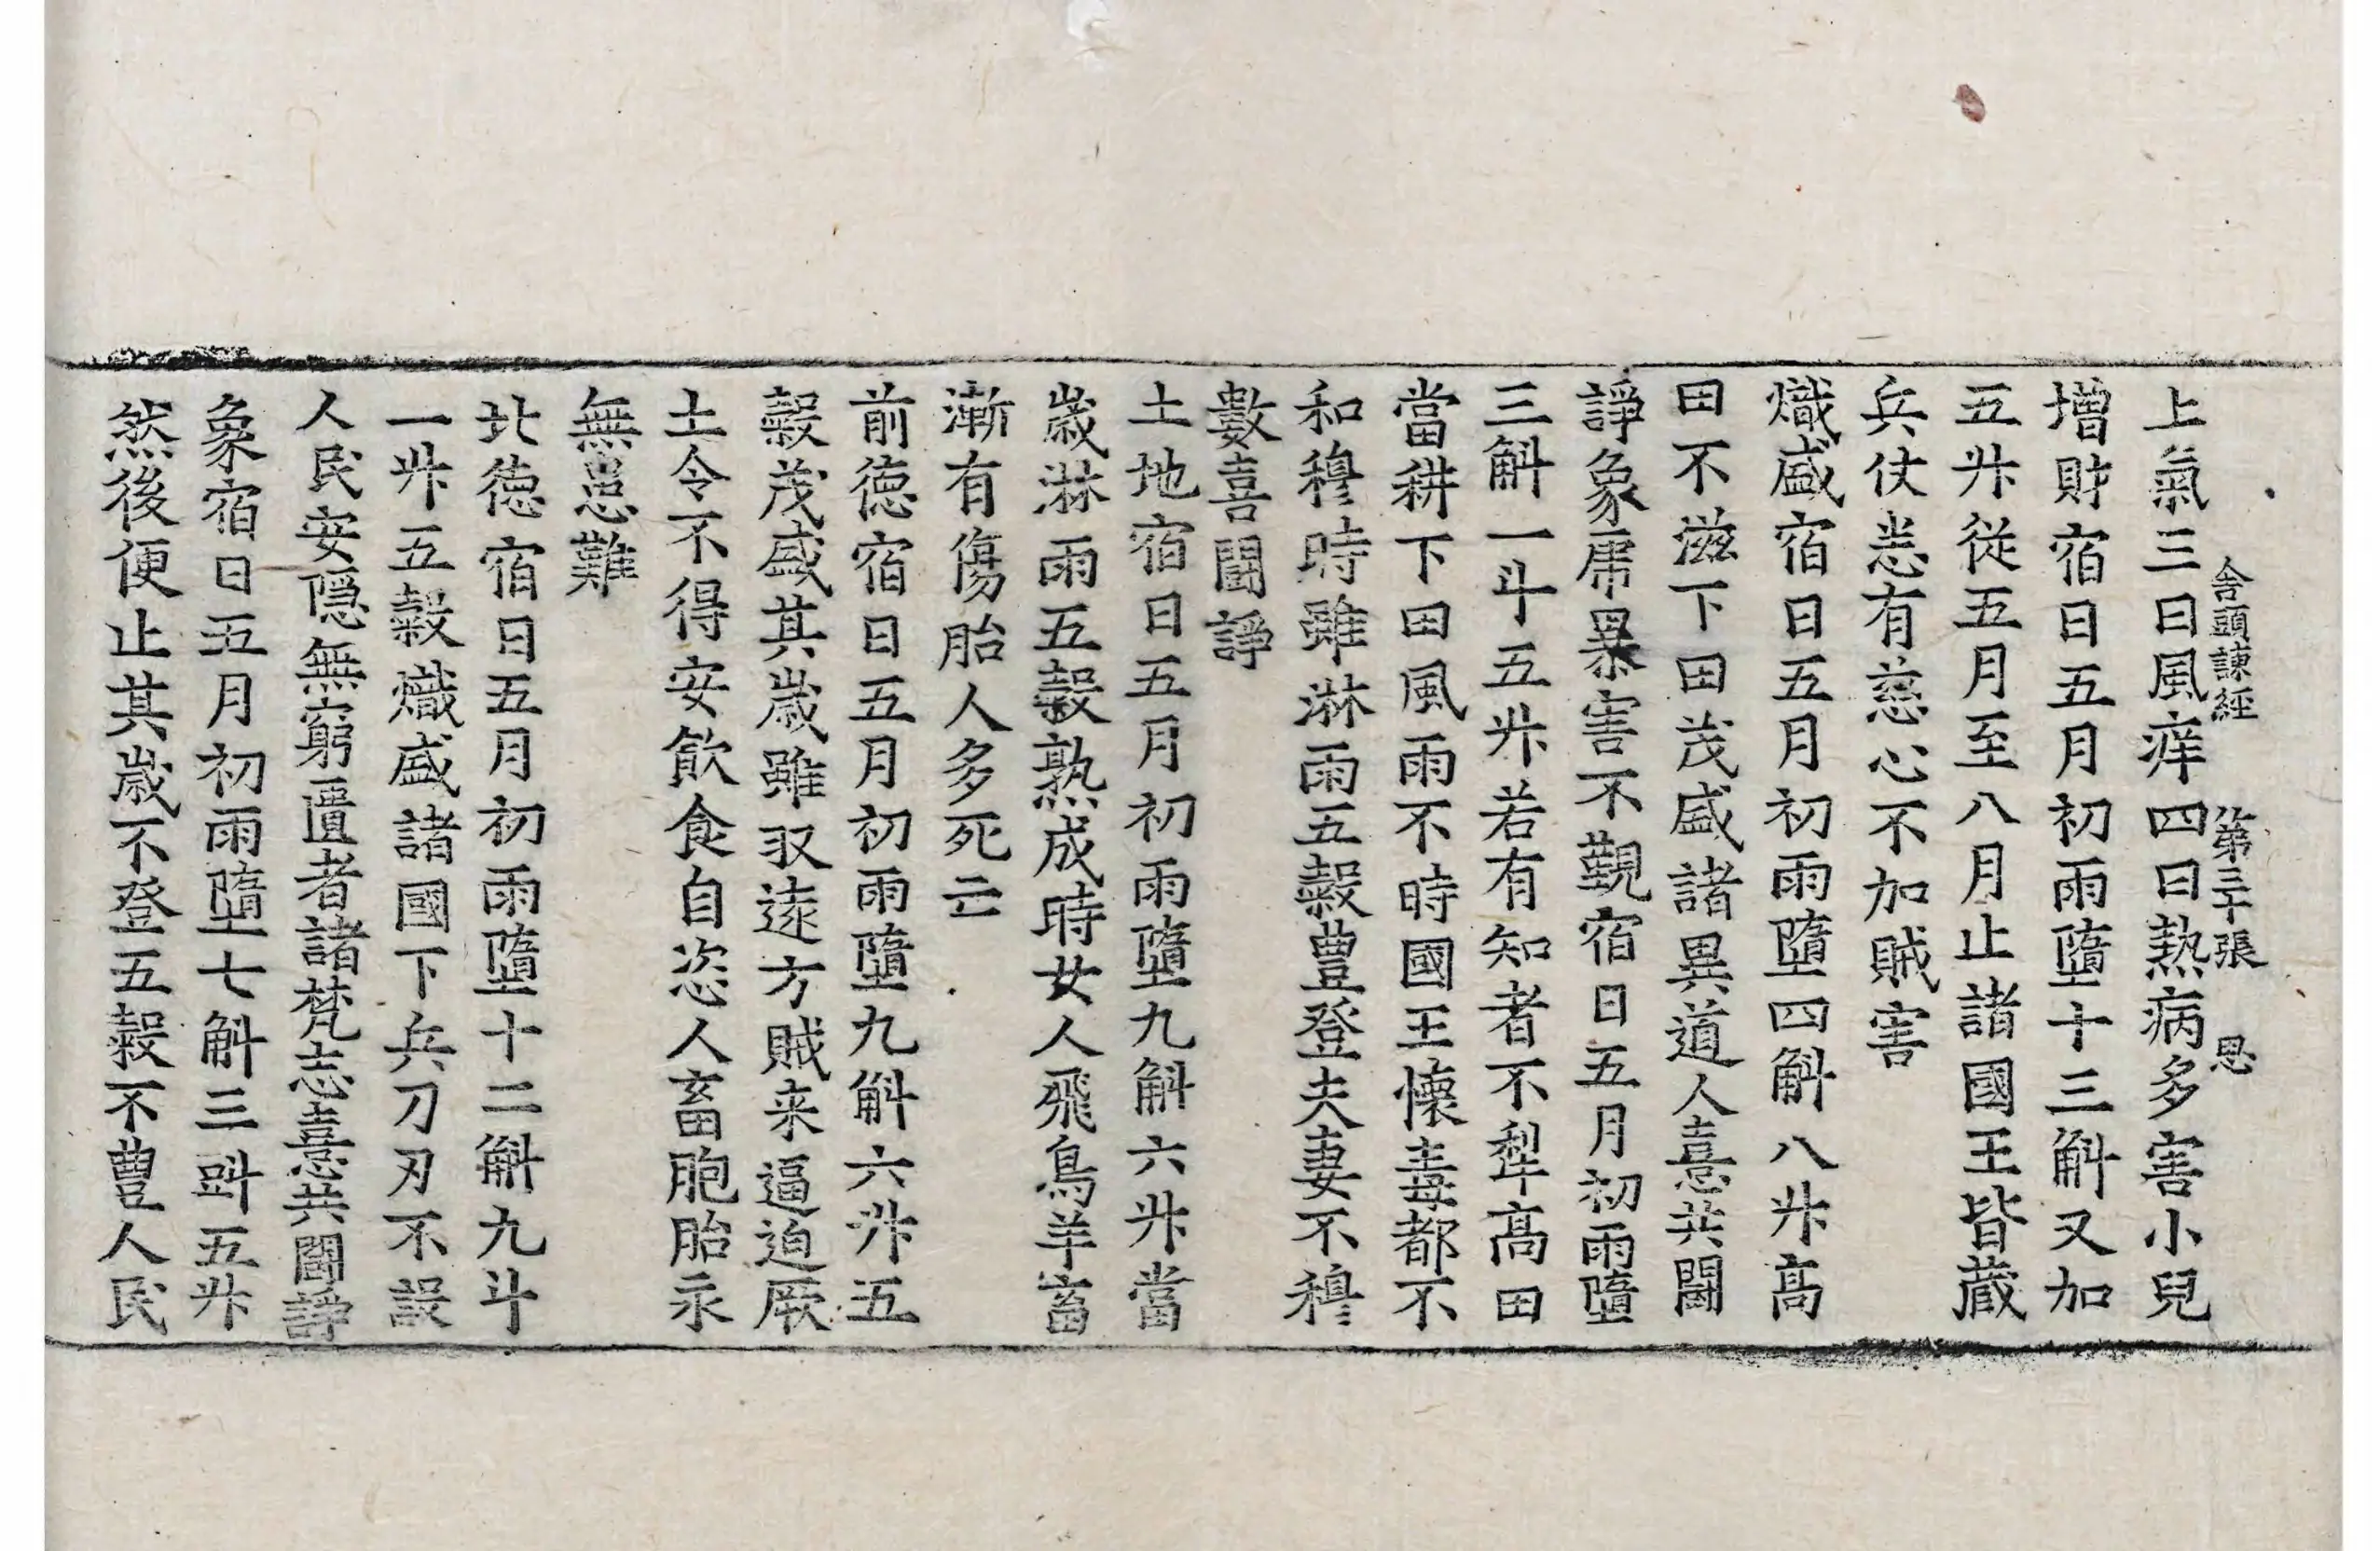 舍頭諫經　第三十張　思
上氣三曰風痒四曰熱病多害小兒
增財宿日五月初雨墮十三斛又加
五升從五月至八月止諸國王皆藏
兵仗恙有慈心不加賊害
熾盛宿日五月初雨墮四斛八升高
田不滋下田茂盛諸異道人憙共鬪
諍象席暴害不觀宿日五月初雨墮
三斛一斗五升若有知者不犁高田
當耕下田風雨不時國王懷毒都不
和穆時雖淋雨五穀豊登夫妻不穆
數喜鬪諍
土地宿日五月初雨墮九斛六升當
歲淋雨五穀熟成時女人飛鳥羊畜
漸有傷胎人多死亡
前德宿日五月初雨墮九斛六升五
穀茂盛其歲雖収遠方賊来逼迫厥
土令不得安飲食自恣人畜胞胎永
無患難
北德宿日五月初雨墮十二斛九斗
一升五穀熾盛諸國下兵刀刃不設
人民安隱無窮匱者諸梵志憙共鬪諍
象宿日五月初雨墮七斛三㪷五升
然後便止其歲不登五穀不豊人民